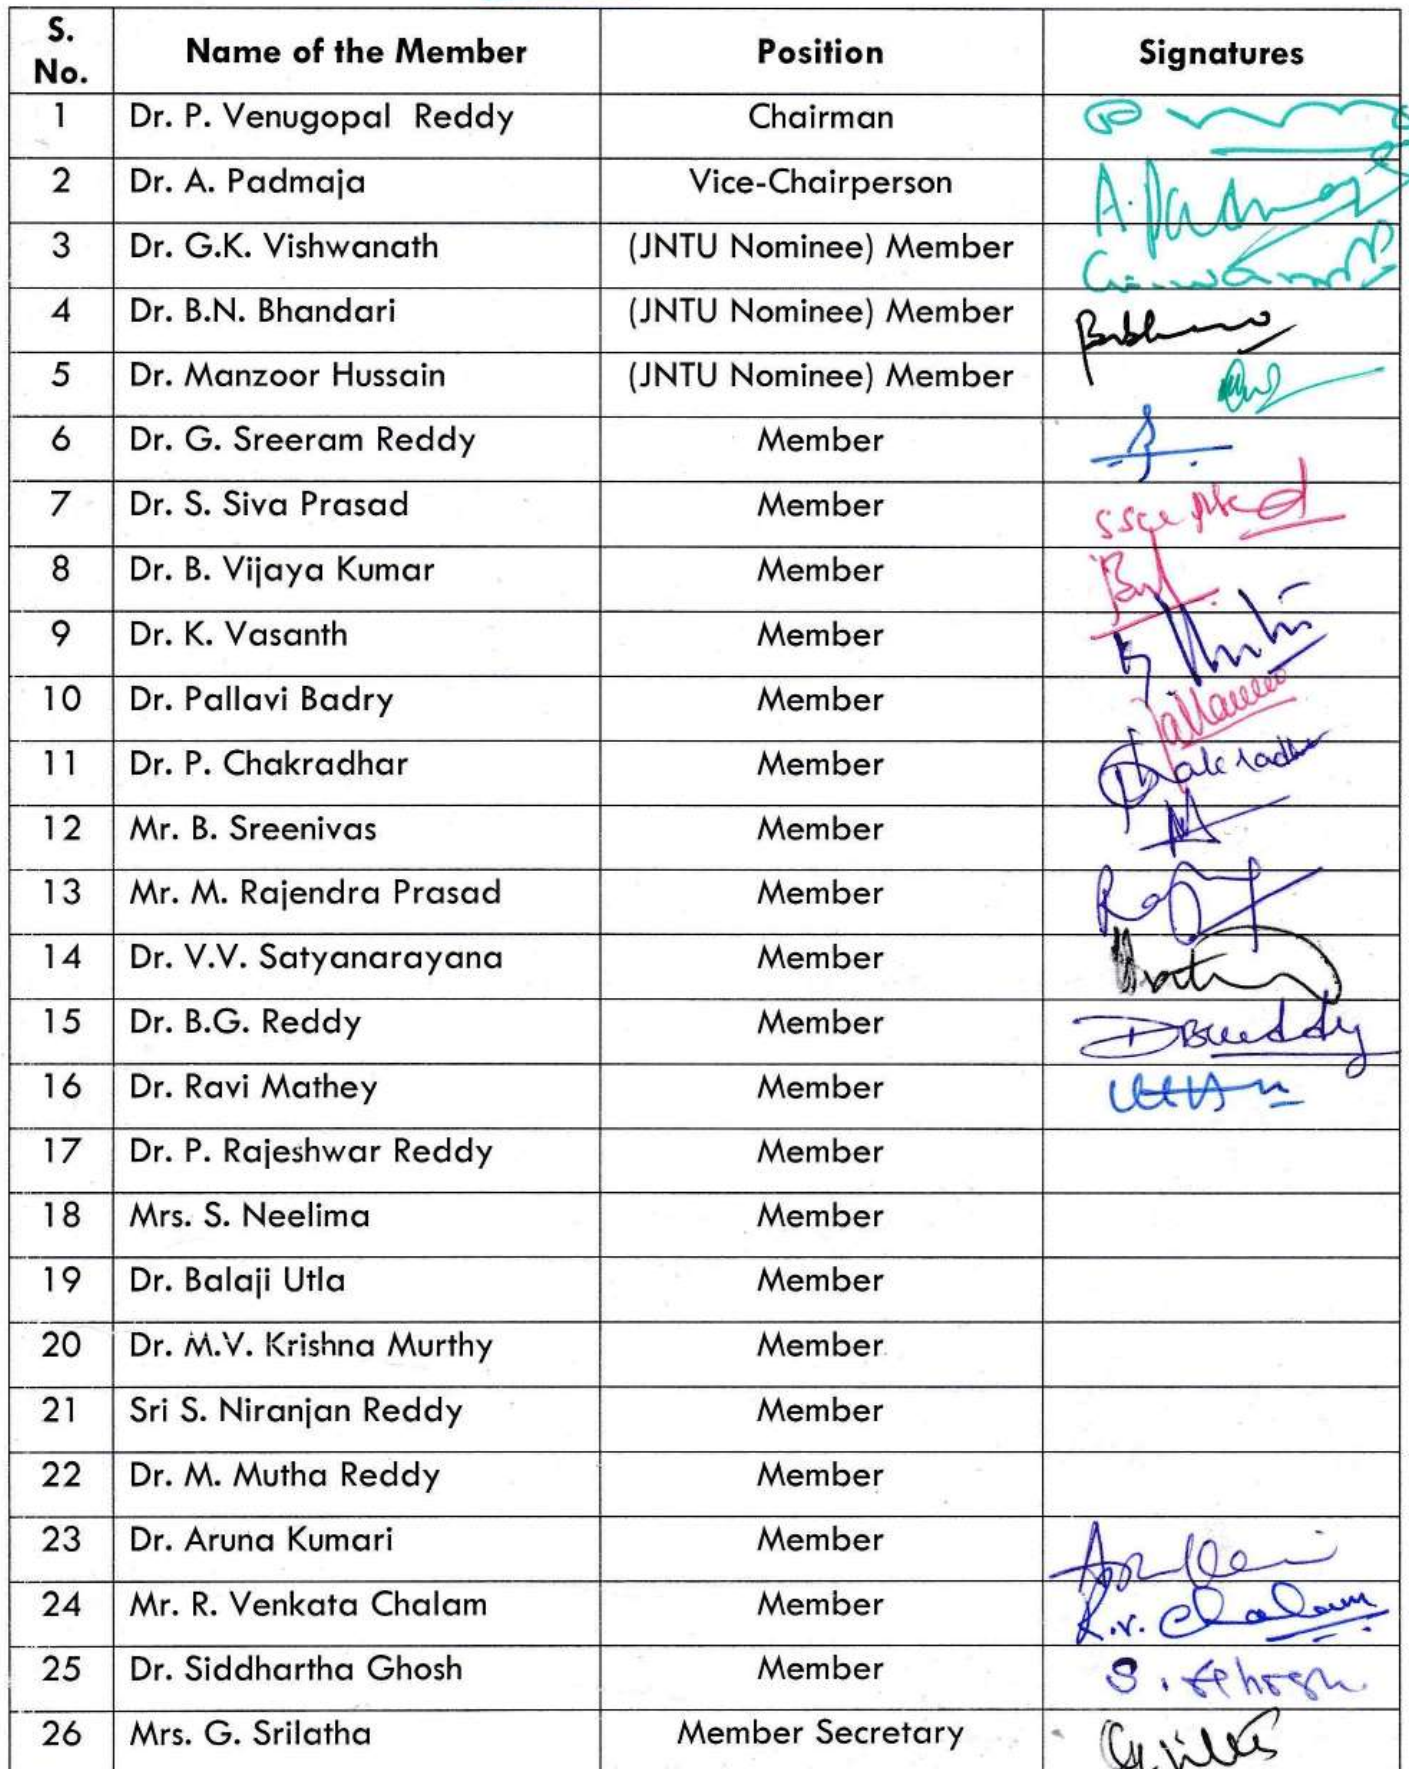 S. No. Name of the Member Position Signatures
1 Dr. P. Venugopal Reddy Chairman
2 Dr. A. Padmaja Vice-Chairperson A. Padmaja
3 Dr. G.K. Vishwanath (JNTU Nominee) Member
4 Dr. B.N. Bhandari (JNTU Nominee) Member
5 Dr. Manzoor Hussain (JNTU Nominee) Member
6 Dr. G. Sreeram Reddy Member
7 Dr. S. Siva Prasad Member
8 Dr. B. Vijaya Kumar Member
9 Dr. K. Vasanth Member
10 Dr. Pallavi Badry Member
11 Dr. P. Chakradhar Member
12 Mr. B. Sreenivas Member
13 Mr. M. Rajendra Prasad Member
14 Dr. V.V. Satyanarayana Member
15 Dr. B.G. Reddy Member
16 Dr. Ravi Mathey Member
17 Dr. P. Rajeshwar Reddy Member
18 Mrs. S. Neelima Member
19 Dr. Balaji Utla Member
20 Dr. M.V. Krishna Murthy Member
21 Sri S. Niranjan Reddy Member
22 Dr. M. Mutha Reddy Member
23 Dr. Aruna Kumari Member
24 Mr. R. Venkata Chalam Member R.V. Chalam
25 Dr. Siddhartha Ghosh Member S. Ghosh
26 Mrs. G. Srilatha Member Secretary